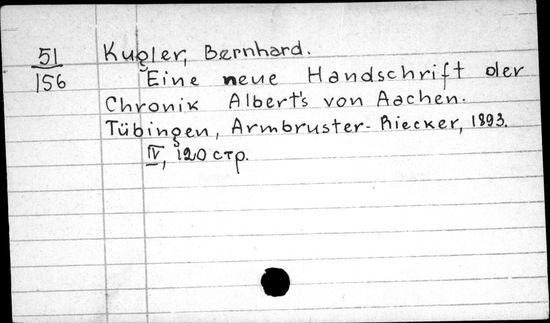 51
156
Kugler, Bernhard.
Eine neue Handschrift der
Chronik Albert's von Aachen.
Tübingen, Armbruster-Riecker, 1893.
IV, 120 стр.